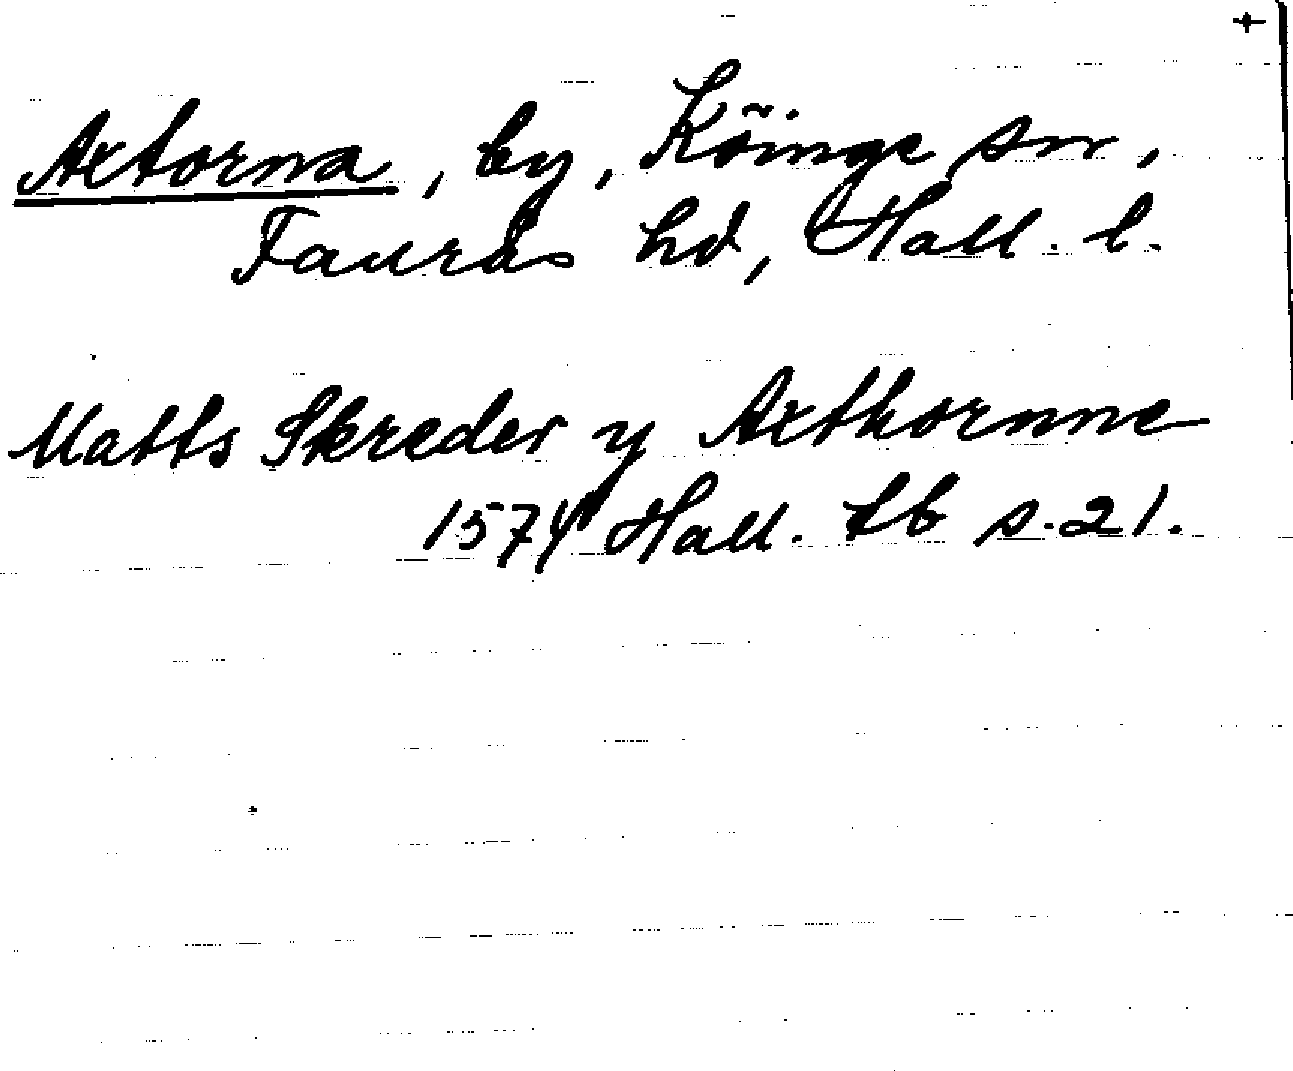 +
Axtorna, by, Köinge sn,
Faurås hd, Hall. l.
Matts Skreder y Axthornne
1574 Hall. tb s. 21.